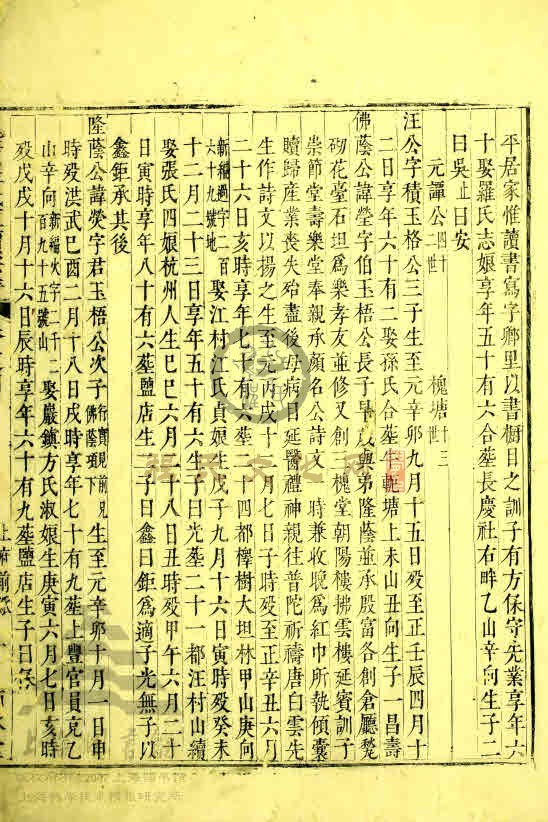 平居家惟讀書寫字鄉里以書櫥目之訓子有方保守先業享年六
十娶羅氏志娘享年五十有六合塟長慶社右畔乙山辛向生子二
曰吳止曰安
元譚公四十二世 槐塘十三世
汪公字積玉格公三子生至元辛卯九月十五日歿至正壬辰四月十
二日享年六十有二娶孫氏合塟生軛塘上未山丑向生子一昌壽
佛蔭公諱瑩字伯玉梧公長子早 與弟隆蔭並承殷富各創倉廳甃
砌花臺石坦爲樂孝友並修又創 槐堂朝陽樓拂雲樓延賓訓子
崇節堂壽樂堂奉親承顔名公詩文 時兼收 爲紅巾所執傾囊
贖歸産業喪失殆盡後母病目延醫禮神親往普陀祈禱唐白雲先
生作詩文以揚之生至元丙戌十 月七日子時歿至正辛丑六月
二十六日亥時享年七十有六塟二十四都櫸樹大坦林甲山庚向
新編過字一百六十九號地 娶江村江氏貞娘生戊子九月十六日寅時歿癸未
十二月二十三日享年五十有六生子曰光塟二十一都汪村山續
娶張氏四娘杭州人生巳巳六月二十八日丑時歿甲午六月二十
日寅時享年八十有六塟鹽店生二子曰鑫曰鉅爲適子光無子以
鑫鉅承其後
隆蔭公諱熒字君玉梧公次子行實見前兄佛蔭項下 生至元辛卯十月一日申
時歿洪武巳酉二月十八日戌時享年七十有九塟上豐官員 乙
山辛向新編火字二千二百九十五號山 娶嚴鎮方氏淑娘生庚寅六月七日亥時
歿戊戌十月十六日辰時享年六十有九塟鹽店生子曰